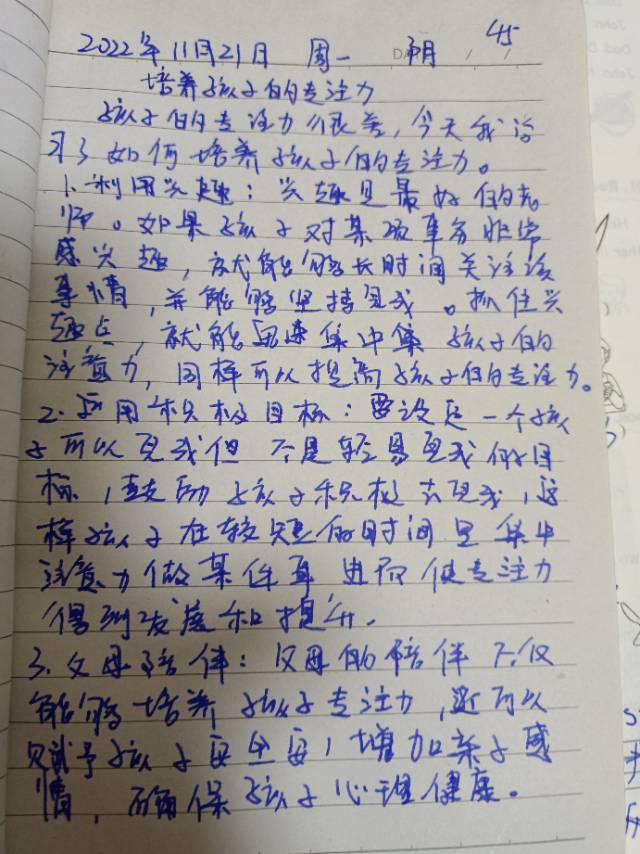 45
2022年11月21日 周一 阴
培养孩子的专注力
孩子的专注力很差,今天我学
习了如何培养孩子的专注力。
1.利用兴趣:兴趣是最好的老
师。如果孩子对某项事务非常
感兴趣,就能够长时间关注该
事情,并能够坚持完成。抓住兴
趣点,就能迅速集中集孩子的
注意力,同样可以提高孩子的专注力。
2.运用积极目标:要设定一个孩
子可以完成但不是轻易完成的目
标,鼓励孩子积极去完成,这
样孩子在较短的时间里集中
注意力做某件事进而使专注力
得到发展和提升.
3.父母陪伴:父母的陪伴不仅
能够培养孩子专注力,还可以
赋予孩子安全感,增加亲子感
情,确保孩子心理健康。